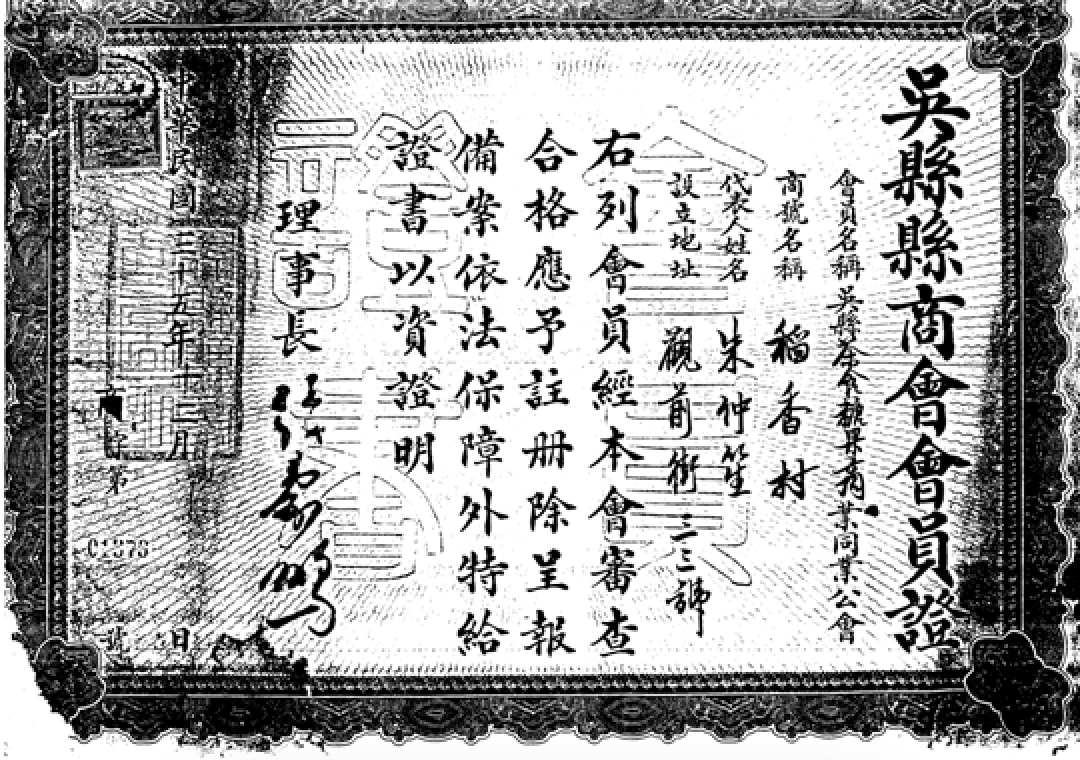 吳縣縣商會會員證
會員名稱 吳縣茶食糖果商業同業公會
商號名稱 稻香村
代表人姓名 朱仲笙
設立地址 觀前街三三號
右列會員經本會審查
合格應予註冊除呈報
備案依法保障外特給
證書以資證明
理事長
中華民國三十五年十二月 日
商字第01373號